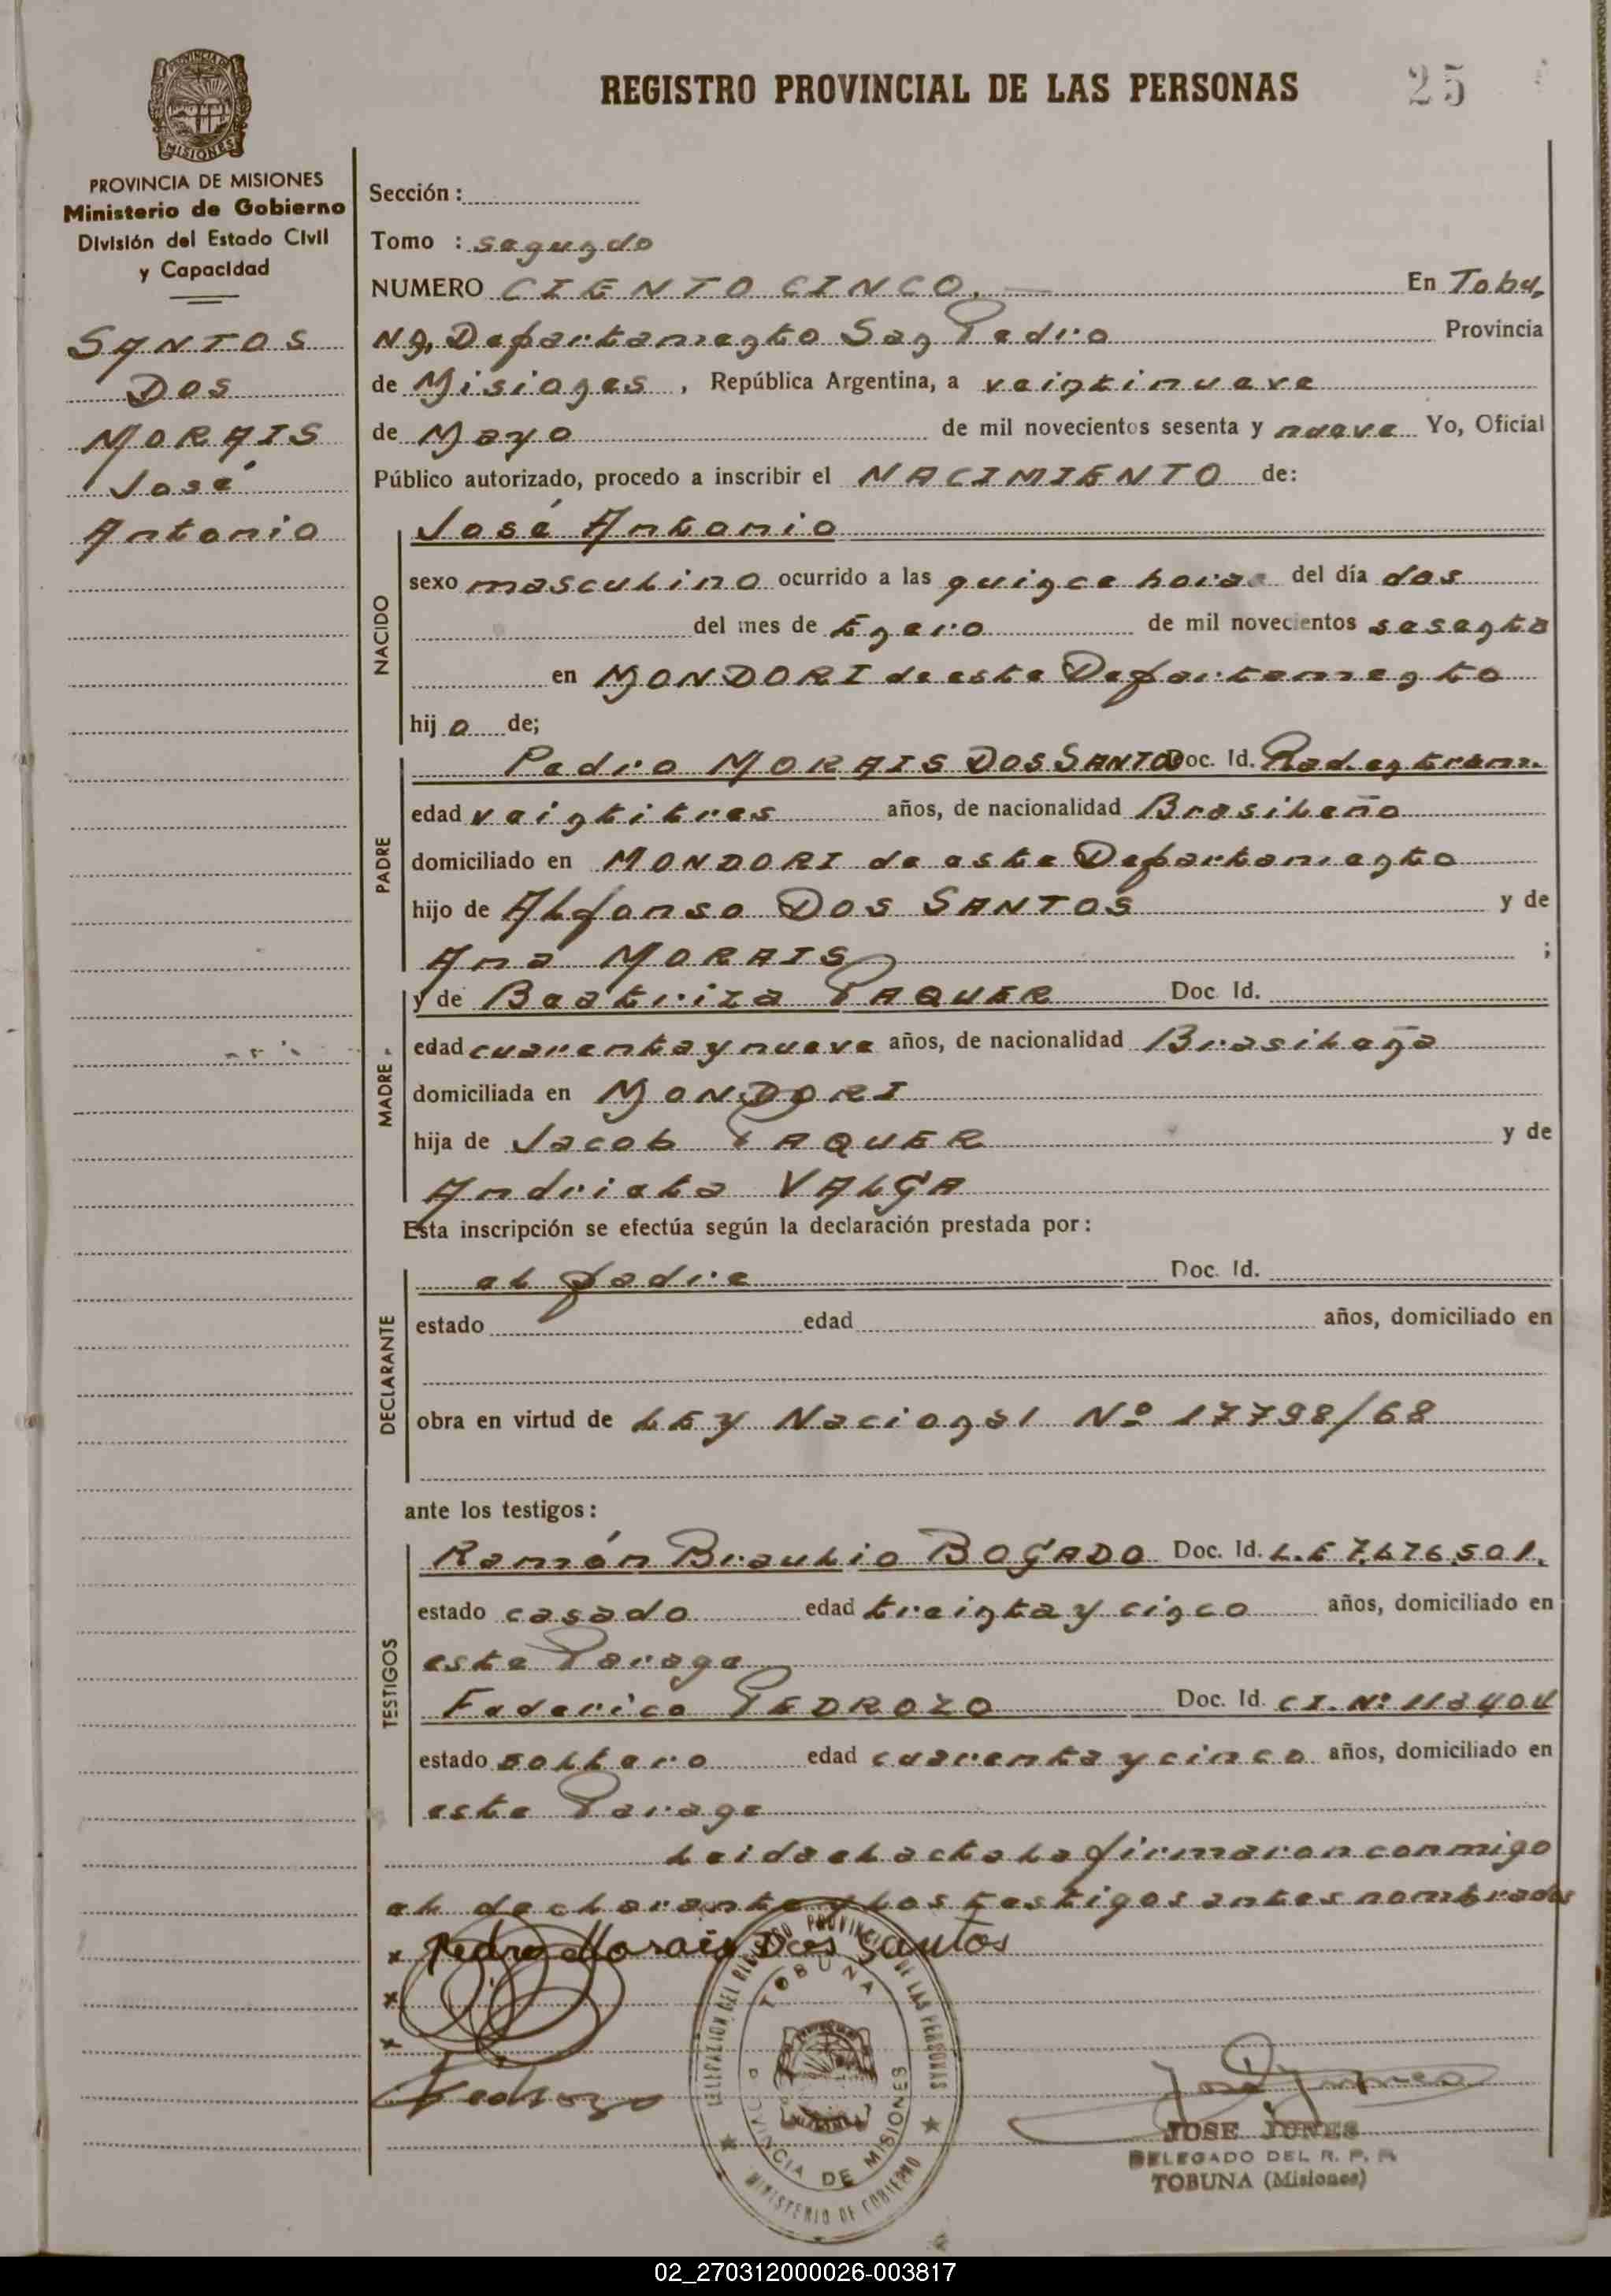 REGISTRO PROVINCIAL DE LAS PERSONAS
25
MISIONES
PROVINCIA DE MISIONES
Ministerio de Gobierno
División del Estado Civil
y Capacidad
SANTOS
DOS
MORAIS
José
Antonio
Sección :
Tomo : segundo
NUMERO CIENTO CINCO. En Tobu,
na, Departamento San Pedro Provincia
de Misiones , República Argentina, a veintinueve
de Mayo de mil novecientos sesenta y nueve Yo, Oficial
Público autorizado, procedo a inscribir el NACIMIENTO de:
José Antonio
NACIDO
sexo masculino ocurrido a las quince horas del día dos
del mes de Enero de mil novecientos sesenta
en MONDORI de este Departamento
hij o de;
PADRE
Pedro MORAIS DOS SANTOS Doc. Id. Rad. en trám.
edad veintitres años, de nacionalidad Brasileño
domiciliado en MONDORI de este Departamento
hijo de Alfonso DOS SANTOS y de
Ana MORAIS ;
MADRE
y de Beatriza PAQUER Doc. Id.
edad cuarenta y nueve años, de nacionalidad Brasileña
domiciliada en MONDORI
hija de Jacob PAQUER y de
Andrieta VALGA
Esta inscripción se efectúa según la declaración prestada por:
DECLARANTE
el padre Doc. Id.
estado edad años, domiciliado en
obra en virtud de LEY Nacional Nº 17798/68
ante los testigos:
TESTIGOS
Ramón Braulio BOGADO Doc. Id. L.E 7.676.501.
estado casado edad treinta y cinco años, domiciliado en
este Parage
Federico PEDROZO Doc. Id. CI. Nº 113404
estado soltero edad cuarenta y cinco años, domiciliado en
este Parage
Leida el acta la firmaron conmigo
el declarante y los testigos antes nombrados
x Pedro Morais Dos Santos
x
x
Pedrozo
DELEGACION DEL REGISTRO PROVINCIAL DE LAS PERSONAS
TOBUNA
PROVINCIA DE MISIONES
MINISTERIO DE GOBIERNO
JOSE JUNES
DELEGADO DEL R. P. P.
TOBUNA (Misiones)
02_270312000026-003817